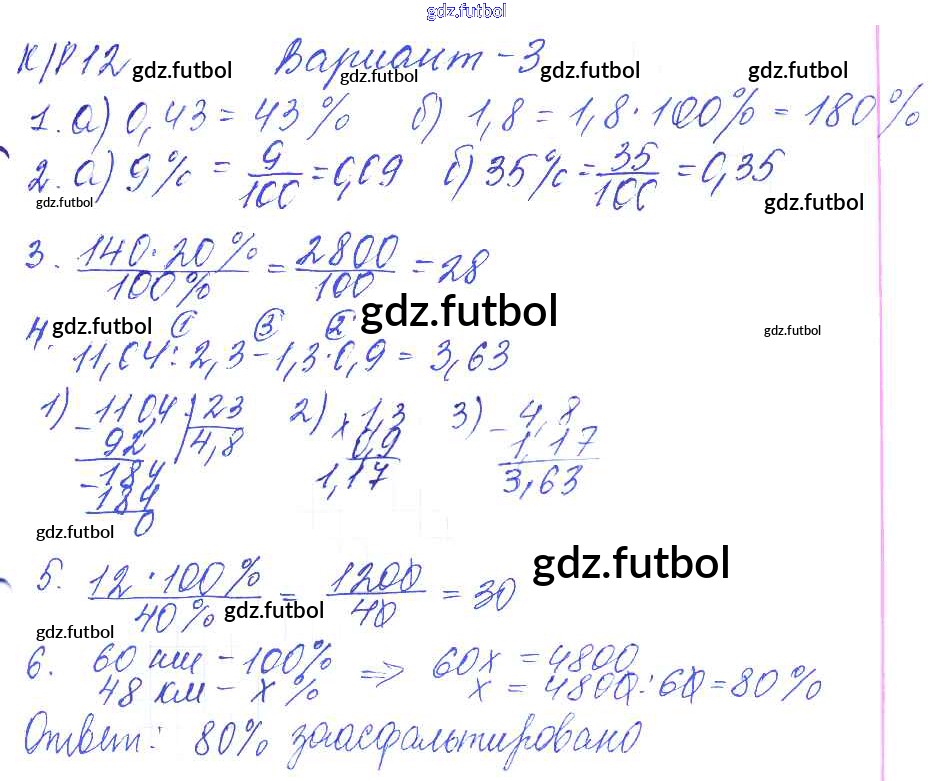 gdz.futbol
К/Р 12 Вариант - 3
gdz.futbol gdz.futbol gdz.futbol gdz.futbol
1. а) 0,43 = 43 % б) 1,8 = 1,8 · 100% = 180 %
2. а) 9 % = 9/100 = 0,09 б) 35 % = 35/100 = 0,35
gdz.futbol gdz.futbol
3. 140 · 20 % / 100 % = 2800/100 = 28
4. gdz.futbol ① ③ ② gdz.futbol gdz.futbol
11,04 : 2,3 - 1,3 · 0,9 = 3,63
1) - 110,4 | 23 2) × 1,3 3) - 4,8
92 4,8 0,9 1,17
- 184 1,17 3,63
184
0
gdz.futbol
5. 12 · 100 % / 40 % = 1200/40 = 30 gdz.futbol
gdz.futbol
gdz.futbol
6. 60 км - 100% => 60x = 4800
48 км - x % x = 4800 : 60 = 80 %
Ответ: 80% заасфальтировано